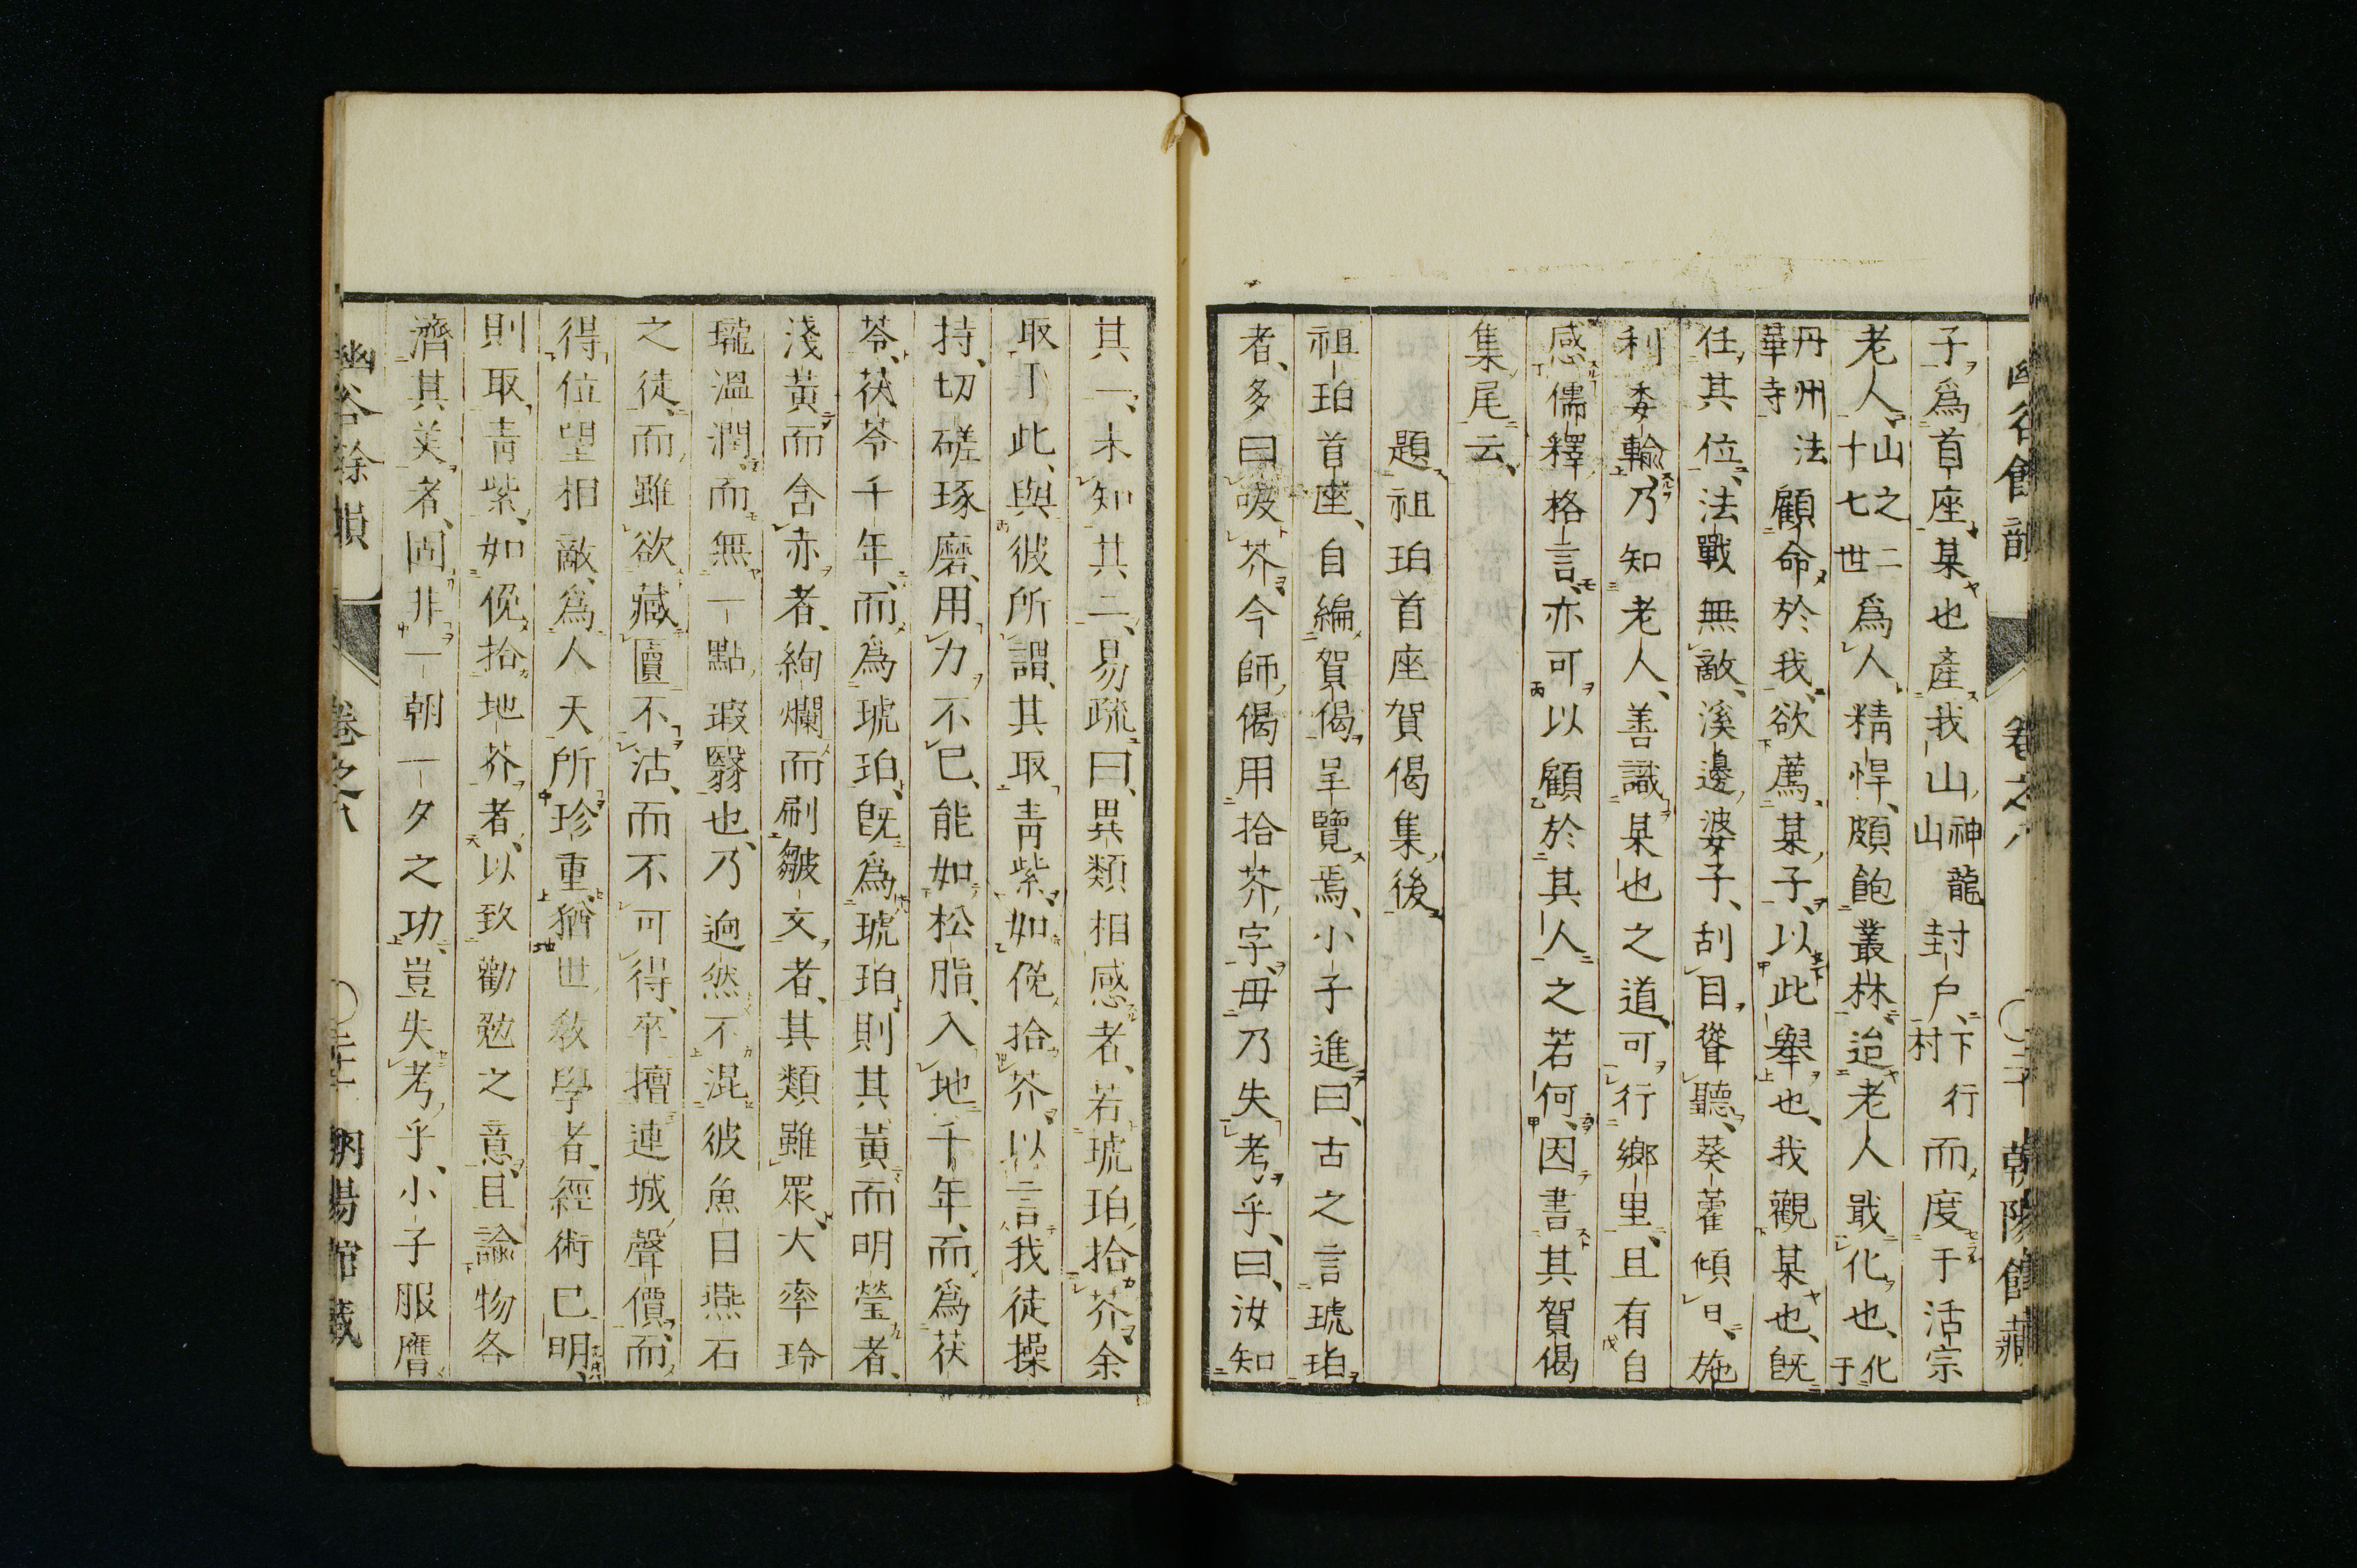 子爲首座某也產我山神龍山封戶卞村行而度于活宗
老人山之二十七世爲人精悍頗飽叢林迨老人戢化也化于
丹州法華寺顧命於我欲薦某子以此舉也我觀某也既
任其位法戰無敵溪邊婆子刮目聳聽葵藿傾日施
利委輸乃知老人善識某也之道可行鄉里且有自
感儒釋格言亦可以顧於其人之若何因書其賀偈
集尾云
題祖珀首座賀偈集後
祖珀首座自編賀偈呈覽焉小子進曰古之言琥珀
者多曰吸芥今師偈用拾芥字毋乃失考乎曰汝知
其一未知其二易疏曰異類相感者若琥珀拾芥余
取丁此與彼所謂其取靑紫如俛拾芥以言我徒操
持切磋琢磨用力不已能如松脂入地千年而爲茯
苓茯苓千年而爲琥珀既爲琥珀則其黃而明瑩者
淺黃而含赤者絢爛而刷皺文者其類雖眾大率玲
瓏溫潤而無一點瑕翳也乃迥然不混彼魚目燕石
之徒而雖欲藏匵不沽而不可得卒擅連城聲價而
得位望相敵爲人天所珍重猶世敎學者經術已明
則取靑紫如俛拾地芥者以致勸勉之意且論物各
濟其美者固非一朝一夕之功豈失考乎小子服膺
幽谷餘韻 卷之八 朝陽館藏